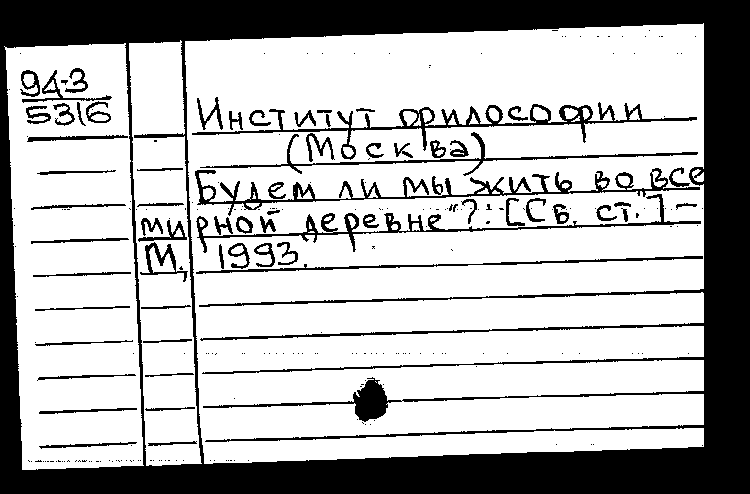 94-3
5316
Институт философии
(Москва)
Будем ли мы жить во „все
мирной деревне"?: [Сб. ст.] –
М., 1993.